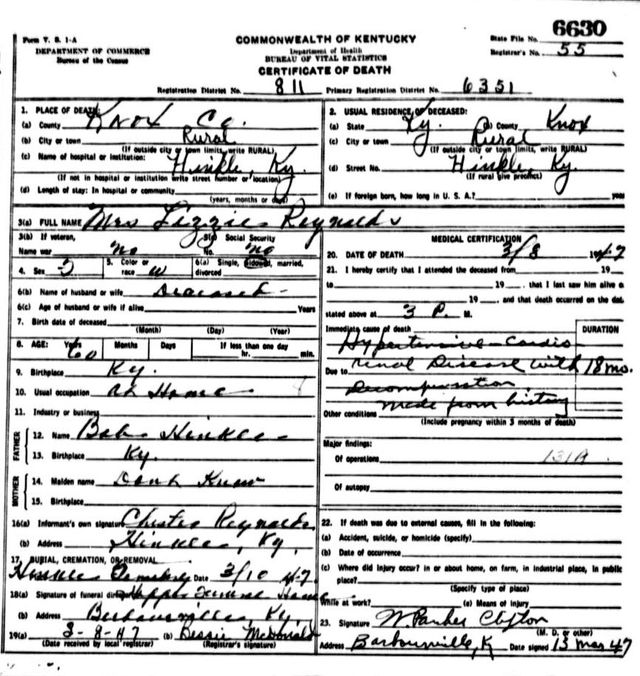 6630
Form V. S. 1-A
DEPARTMENT OF COMMERCE
Bureau of the Census
COMMONWEALTH OF KENTUCKY
Department of Health
BUREAU OF VITAL STATISTICS
CERTIFICATE OF DEATH
State File No.
Registrar's No. 55
Registration District No. 811 Primary Registration District No. 6351
1. PLACE OF DEATH:
(a) County Knox Co.
(b) City or town Rural
(If outside city or town limits, write RURAL)
(c) Name of hospital or institution: Hinkle, Ky.
(If not in hospital or institution write street number or location)
(d) Length of stay: In hospital or community
(years, months or days)
2. USUAL RESIDENCE OF DECEASED:
(a) State Ky. (b) County Knox
(c) City or town Rural
(If outside city or town limits, write RURAL)
(d) Street No. Hinkle, Ky.
(If rural give precinct)
(e) If foreign born, how long in U. S. A.? years
3(a) FULL NAME Mrs Lizzie Reynolds
3(b) If veteran,
Name war no
3(c) Social Security
No. no
4. Sex
5. Color or
race W
6(a) Single, widowed, married,
divorced
6(b) Name of husband or wife Deceased
6(c) Age of husband or wife if alive Years
7. Birth date of deceased
(Month) (Day) (Year)
8. AGE: Years Months Days If less than one day
60 hr. min.
9. Birthplace Ky.
10. Usual occupation At Home
11. Industry or business
FATHER
12. Name Bob Hinkle
13. Birthplace Ky.
MOTHER
14. Maiden name Dont Know
15. Birthplace
16(a) Informant's own signature Chester Reynolds
(b) Address Hinkle, Ky.
17. BURIAL, CREMATION, OR REMOVAL
Hinkle Cemetery Date 3/10 47
18(a) Signature of funeral director Funeral Home
(b) Address Barbourville, Ky.
19(a) 3-8-47 (b) Bessie McDonald
(Date received by local registrar) (Registrar's signature)
MEDICAL CERTIFICATION
20. DATE OF DEATH 3/8 1947
21. I hereby certify that I attended the deceased from 19
to 19, that I last saw him alive on
19, and that death occurred on the date
stated above at 3 P. M.
Immediate cause of death DURATION
Hypertensive-Cardio
Due to renal Disease with 18 mo.
Decompensation
made from history
Other conditions
(Include pregnancy within 3 months of death)
Major findings:
Of operations 131A
Of autopsy
22. If death was due to external causes, fill in the following:
(a) Accident, suicide, or homicide (specify)
(b) Date of occurrence
(c) Where did injury occur? in or about home, on farm, in industrial place, in public
place?
(Specify type of place)
While at work? (e) Means of injury
23. Signature W. Parker Clifton
(M. D. or other)
Address Barbourville, K Date signed 13 Mar 47